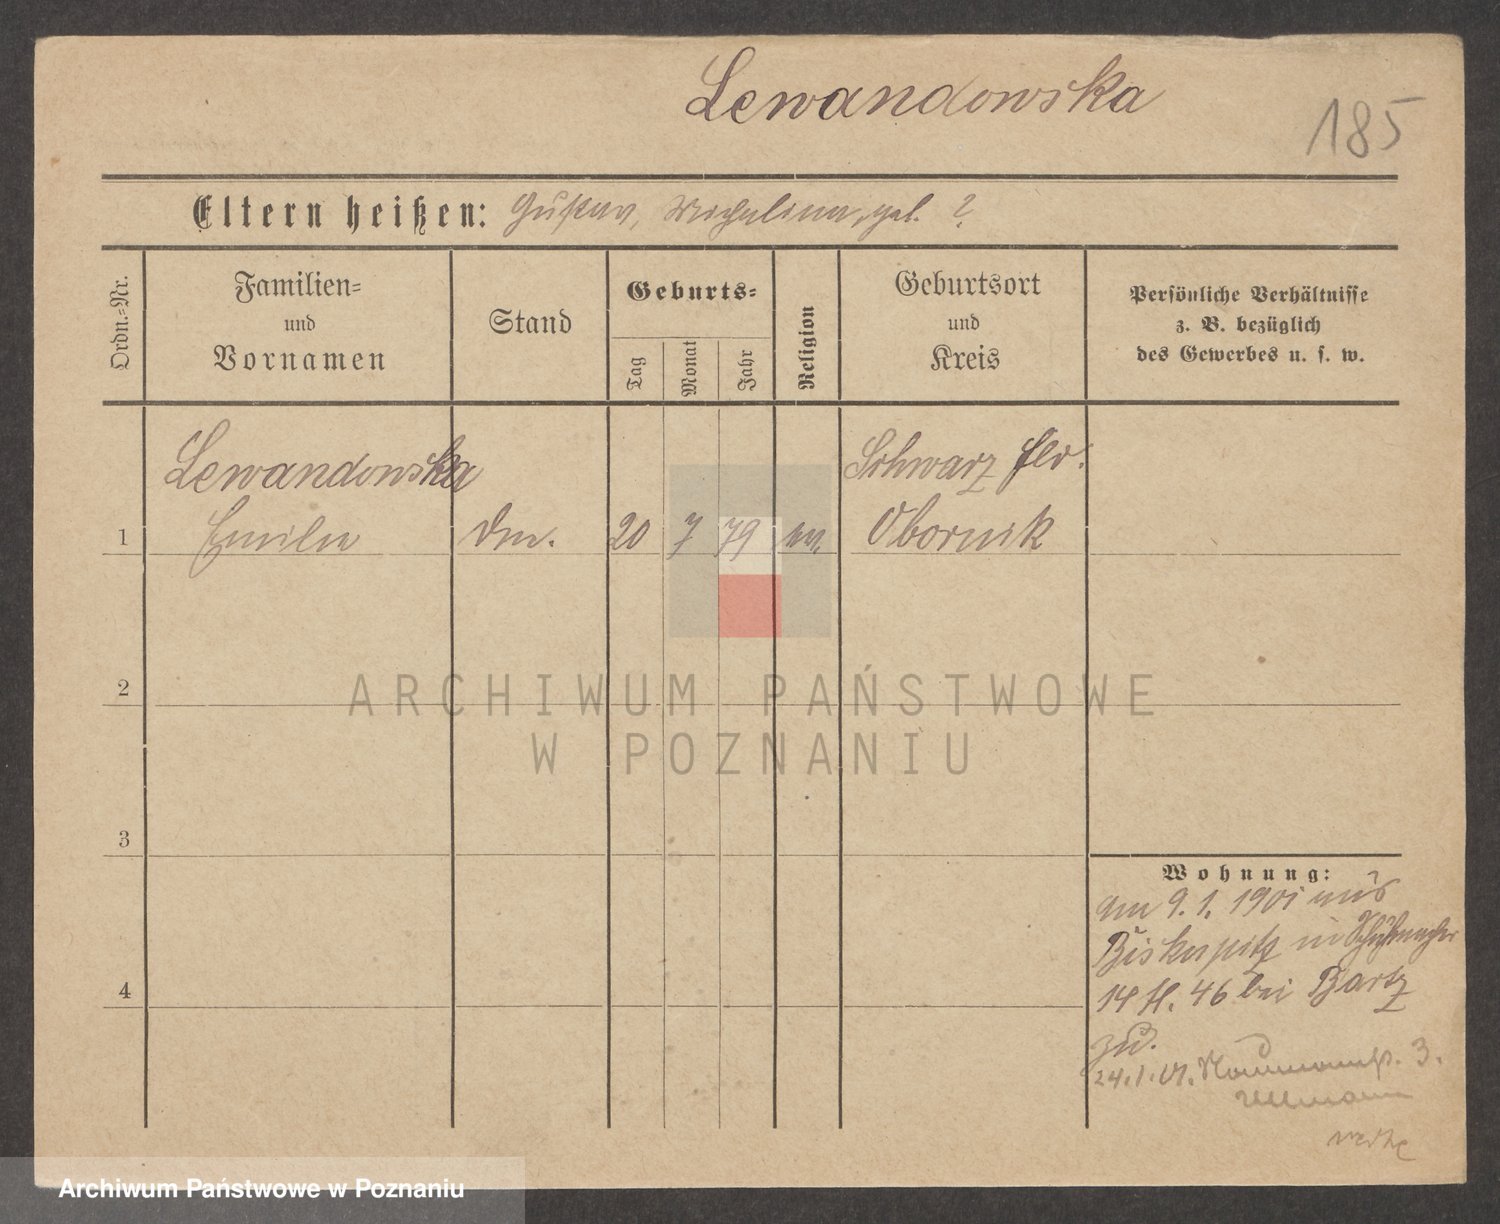 Lewandowska
185
Eltern heißen: Gustav, geb. ?
Ordn.-Nr.
Familien-
und
Vornamen
Stand
Geburts-
Tag
Monat
Jahr
Religion
Geburtsort
und
Kreis
Persönliche Verhältnisse
z. B. bezüglich
des Gewerbes u. s. w.
Lewandowska
Schwarz
1 Emilie 20 7 79 ev. Obornik
2
ARCHIWUM PAŃSTWOWE
W POZNANIU
3
Wohnung:
am 9.1.1901 aus
Biskupitz in Schuhmacher
14 H. 46 bei Bartz
zu.
24.1.01. Naumannstr. 3.
Archiwum Państwowe w Poznaniu